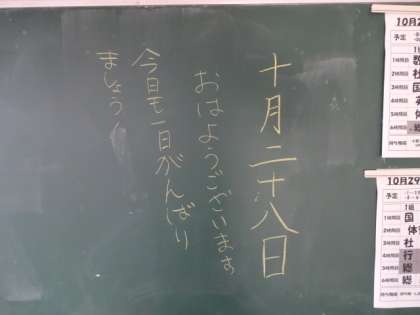 十月二十八日
おはようございます
今日も一日がんばり
ましょう！
10月2
予定
1時間目 数
2時間目 社
3時間目 国
4時間目 英
5時間目 体
6時間目 総
10月29
予定
1組
1時間目 国
2時間目 体
3時間目 社
4時間目 行
5時間目 総
6時間目 総